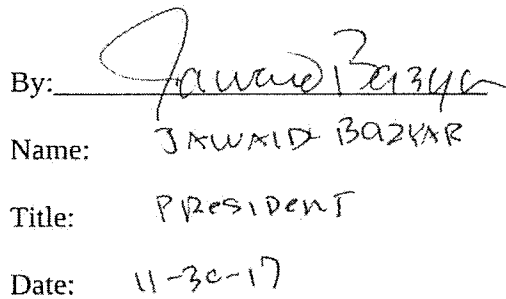 By: Jawaid Bazyar
Name: JAWAID BAZYAR
Title: PResIDenT
Date: 11-30-17